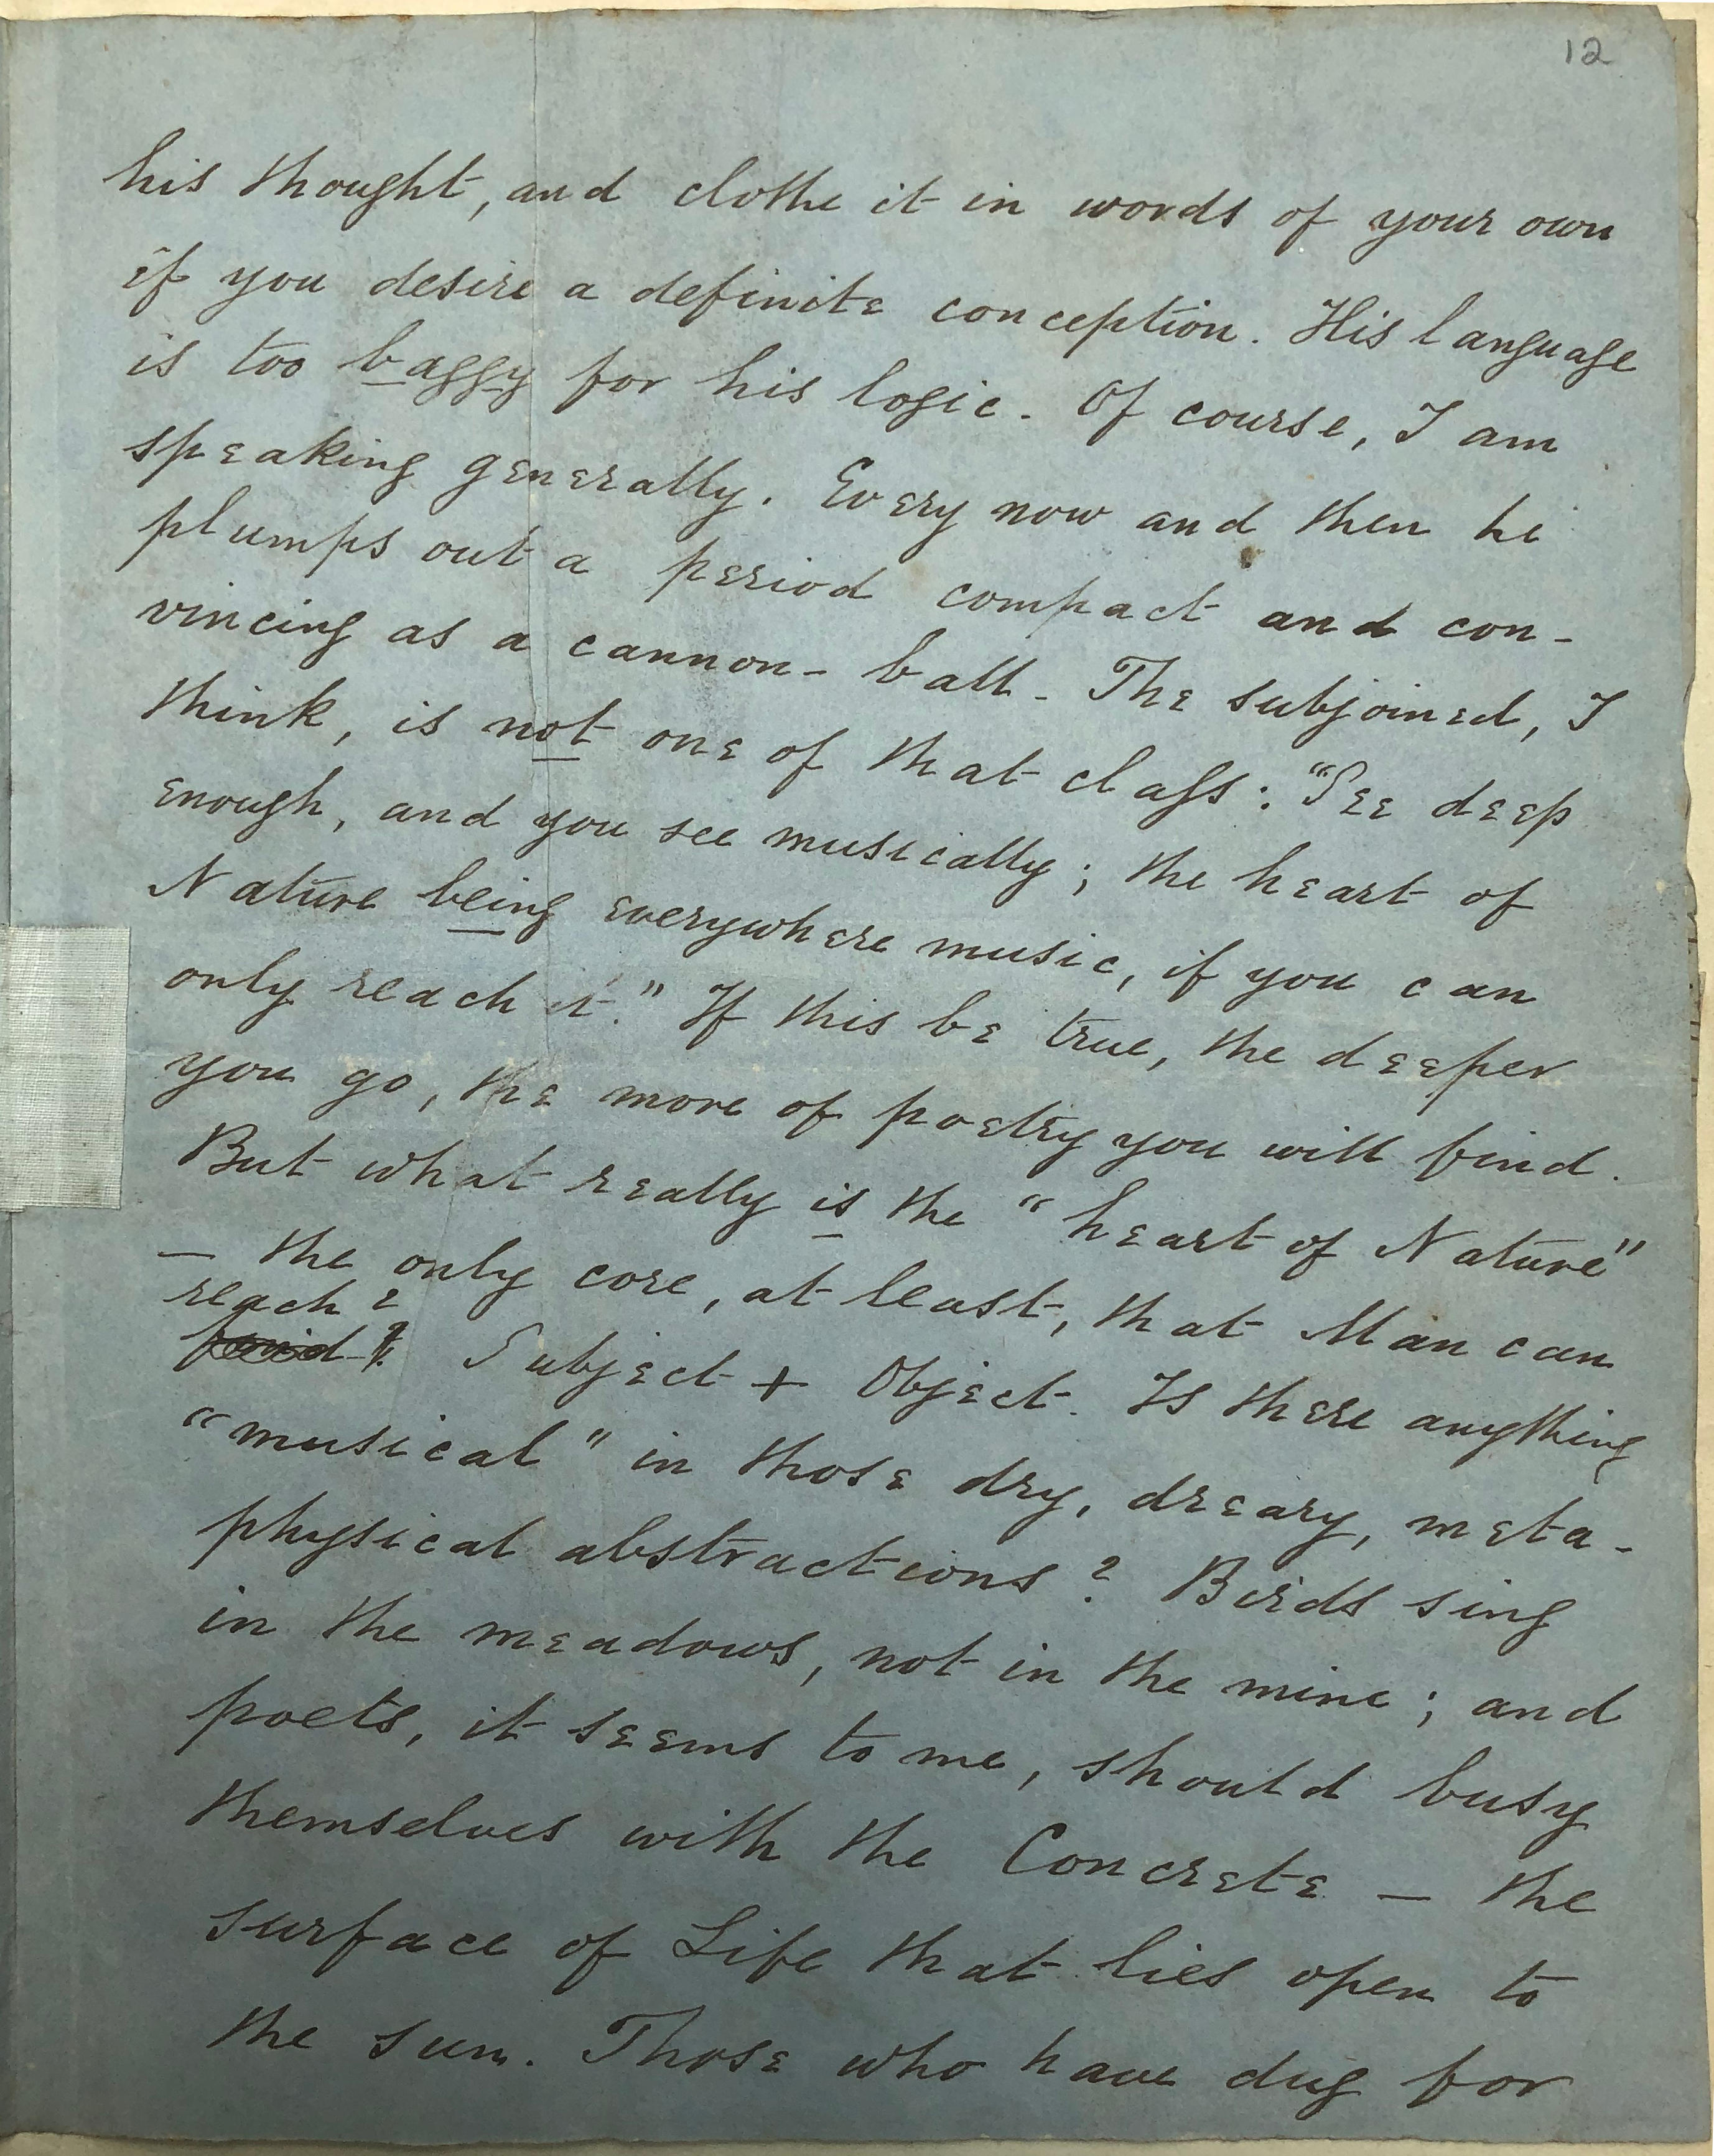 12
his thought, and clothe it in words of your own
if you desire a definite conception. His language
is too baggy for his logic. Of course, I am
speaking generally. Every now and then he
plumps out a period compact and con-
vincing as a cannon-ball. The subjoined, I
think, is not one of that class: "See deep
enough, and you see musically; the heart of
Nature being everywhere music, if you can
only reach it." If this be true, the deeper
you go, the more of poetry you will find.
But what really is the "heart of Nature"
— the only core, at least, that Man can
reach?
find? Subject + Object. Is there anything
"musical" in those dry, dreary, meta-
physical abstractions? Birds sing
in the meadows, not in the mine; and
poets, it seems to me, should busy
themselves with the Concrete — the
surface of Life that lies open to
the sun. Those who have dug for